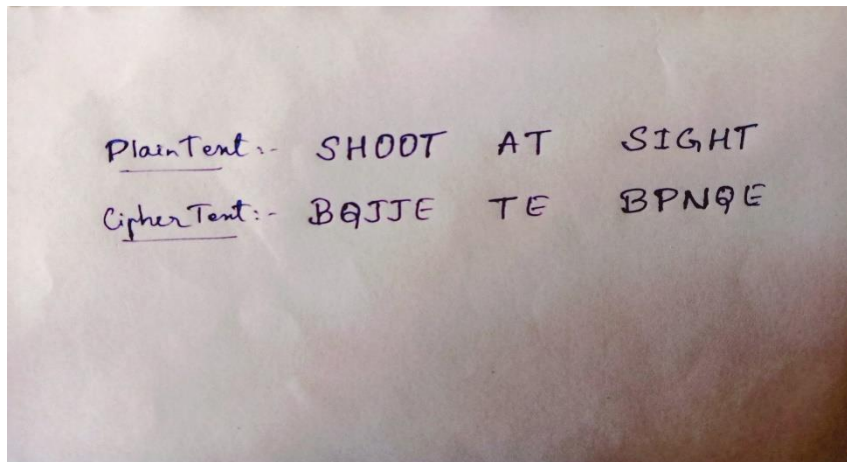 PlainText:- SHOOT AT SIGHT
CipherText:- BQJJE TE BPNQE